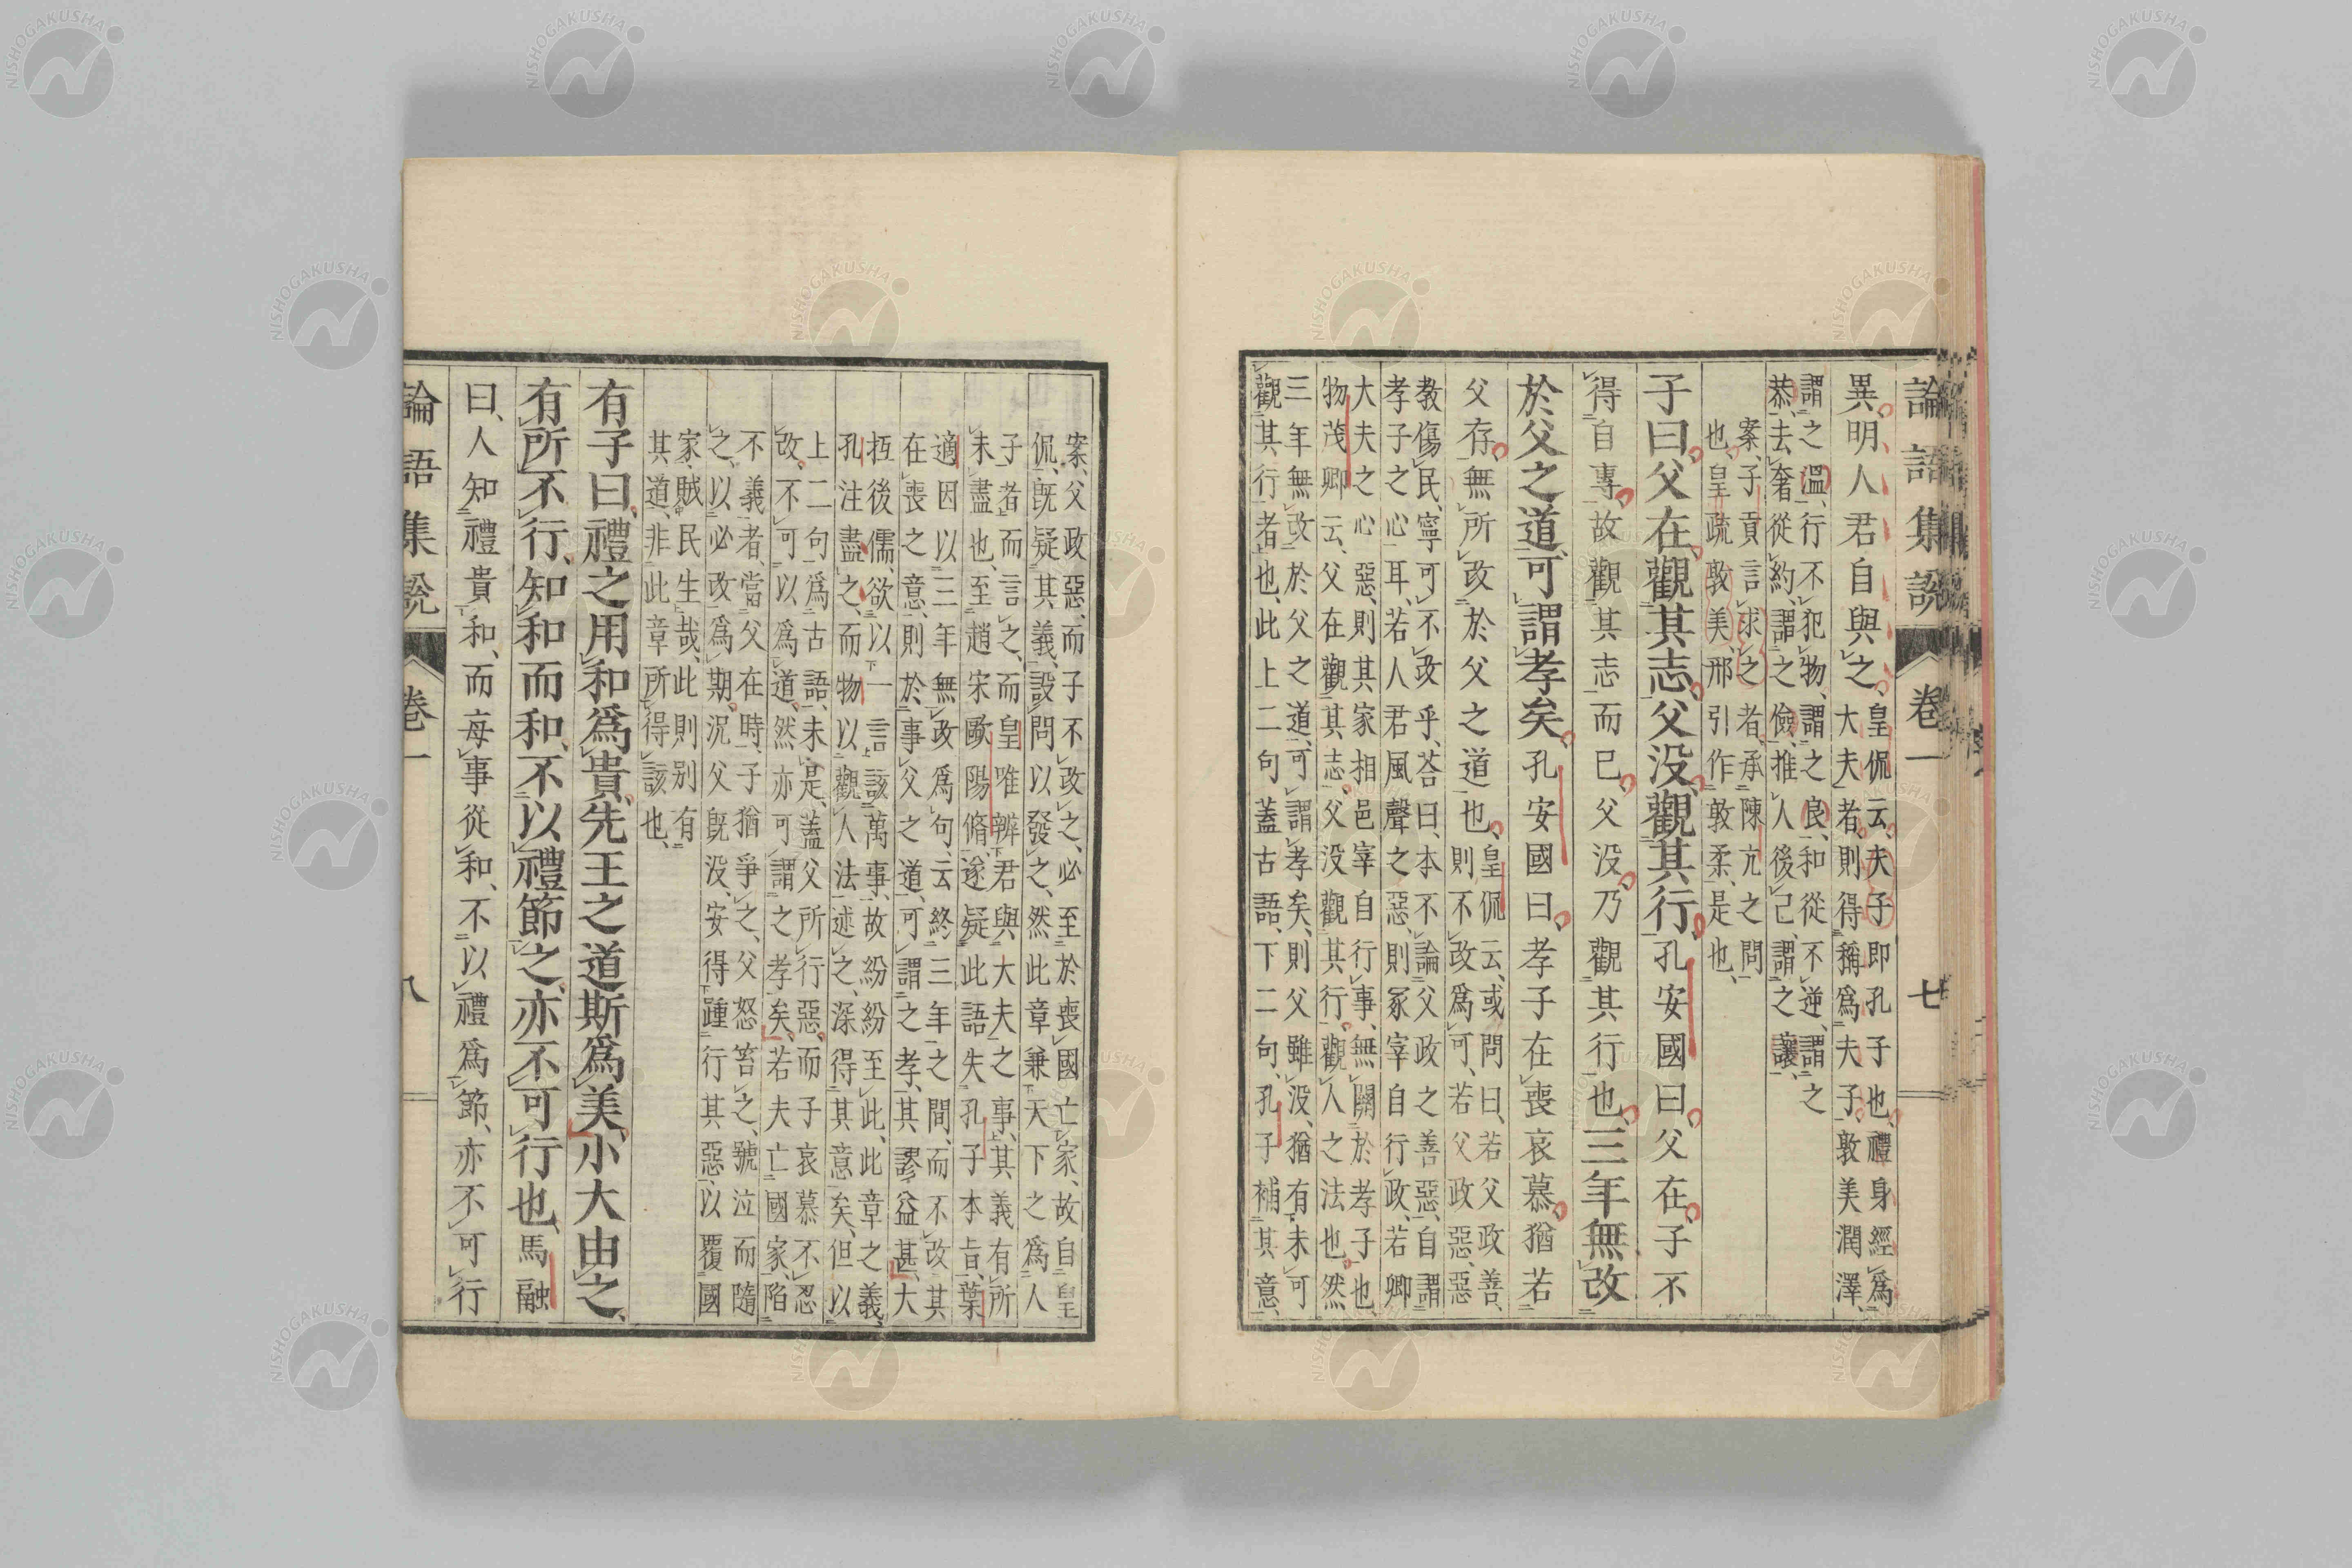 論語集説 卷一 七
異、明人君自與之、
皇侃云、夫子即孔子也、禮身經爲
大夫者、則得稱爲夫子、敦美潤澤、
謂之溫、行不犯物、謂之良、和從不逆、謂之
恭、去奢從約、謂之儉、推人後己、謂之讓、
案、子貢言求之者、承陳亢之問
也、皇疏敦美、邢引作敦柔、是也、
子曰、父在、觀其志、父没、觀其行、孔安國曰、父在、子不
得自專、故觀其志而已、父没、乃觀其行也、三年無改
於父之道、可謂孝矣、孔安國曰、孝子在喪哀慕、猶若
父存、無所改於父之道也、
皇侃云、或問曰、若父政善、
則不改爲可、若父政惡、惡
教傷民、寧可不改乎、荅曰、本不論父政之善惡、自謂
孝子之心耳、若人君風聲之惡、則冢宰自行政、若卿
大夫之心惡、則其家相邑宰自行事、無關於孝子也、
物茂卿云、父在觀其志、父没觀其行、觀人之法也、然
三年無改於父之道、可謂孝矣、則父雖没、猶有未可
觀其行者也、此上二句蓋古語、下二句、孔子補其意、
案、父政惡、而子不改之、必至於喪國亡家、故自皇
侃、既疑其義、設問以發之、然此章兼天下之爲人
子者而言之、而皇唯辨君與大夫之事、其義有所
未盡也、至趙宋歐陽脩、遂疑此語失孔子本旨、葉
適因以三年無改爲句、云終三年之間、而不改其
在喪之意、則於事父之道、可謂之孝、其謬益甚、大
抂後儒、欲以一言該萬事、故紛紛至此、此章之義、
孔注盡之、而物以觀人法述之、深得其意矣、但以
上二句爲古語、未是、蓋父所行惡、而子哀慕不忍
改、不可以爲道、然亦可謂之孝矣、若夫亡國家、陷
不義者、當父在時、子猶爭之、父怒笞之、號泣而隨
之、以必改爲期、況父既没、安得踵行其惡、以覆國
家、賊民生哉、此則别有
其道、非此章所得該也、
有子曰、禮之用、和爲貴、先王之道斯爲美、小大由之、
有所不行、知和而和、不以禮節之、亦不可行也、馬融
曰、人知禮貴和、而每事從和、不以禮爲節、亦不可行
論語集説 卷一 八
NISHOGAKUSHA